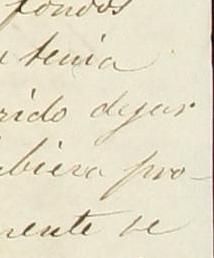 fondos
tenia
rido dejar
biera pro-
mente se